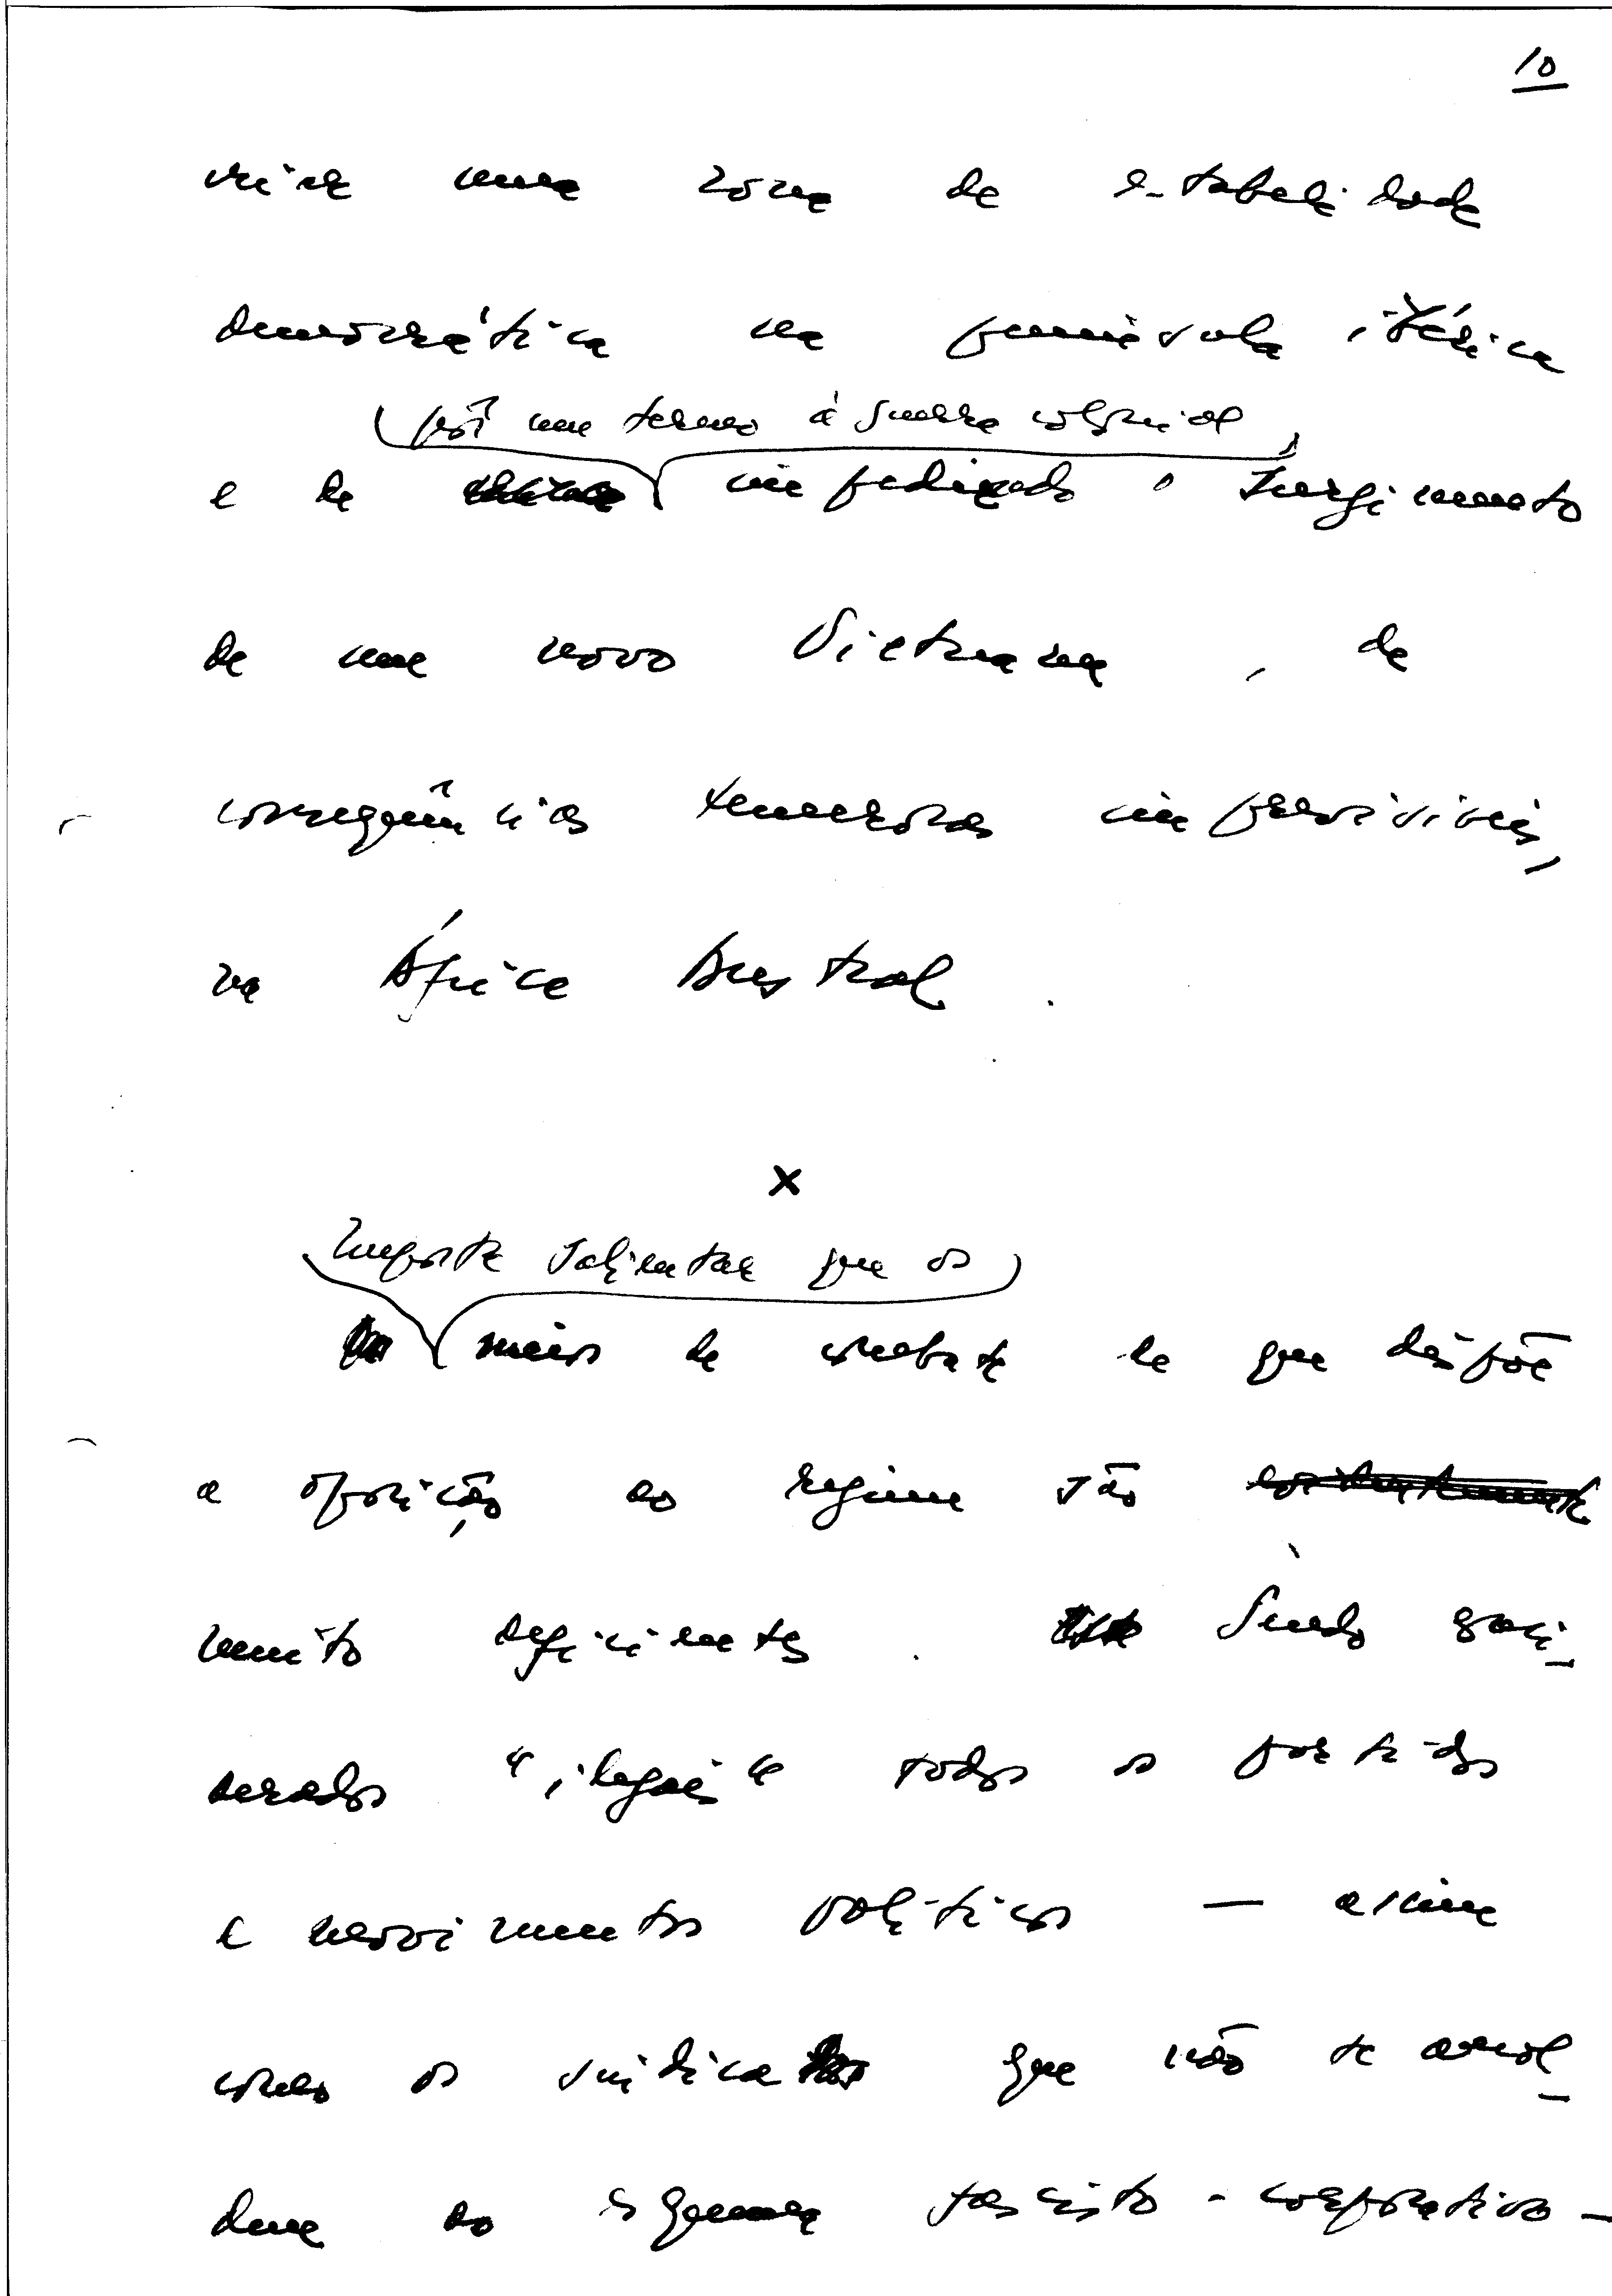 10
criar uma zona de estabilidade
democrática na península ibérica
pôr um termo à guerra colonial,
e de impedindo o surgimento
de um novo Vietnam, de
consequências temerosas imprevisíveis,
na África Austral.
x
Importa salientar que os
meios de combate de que dispõe
a oposição ao regime são
muito deficientes. Sendo consi-
derados "ilegais" todos os partidos
e movimentos políticos — assim
como os sindicatos que não se amol-
dem ao esquema fascisto-corporativo —